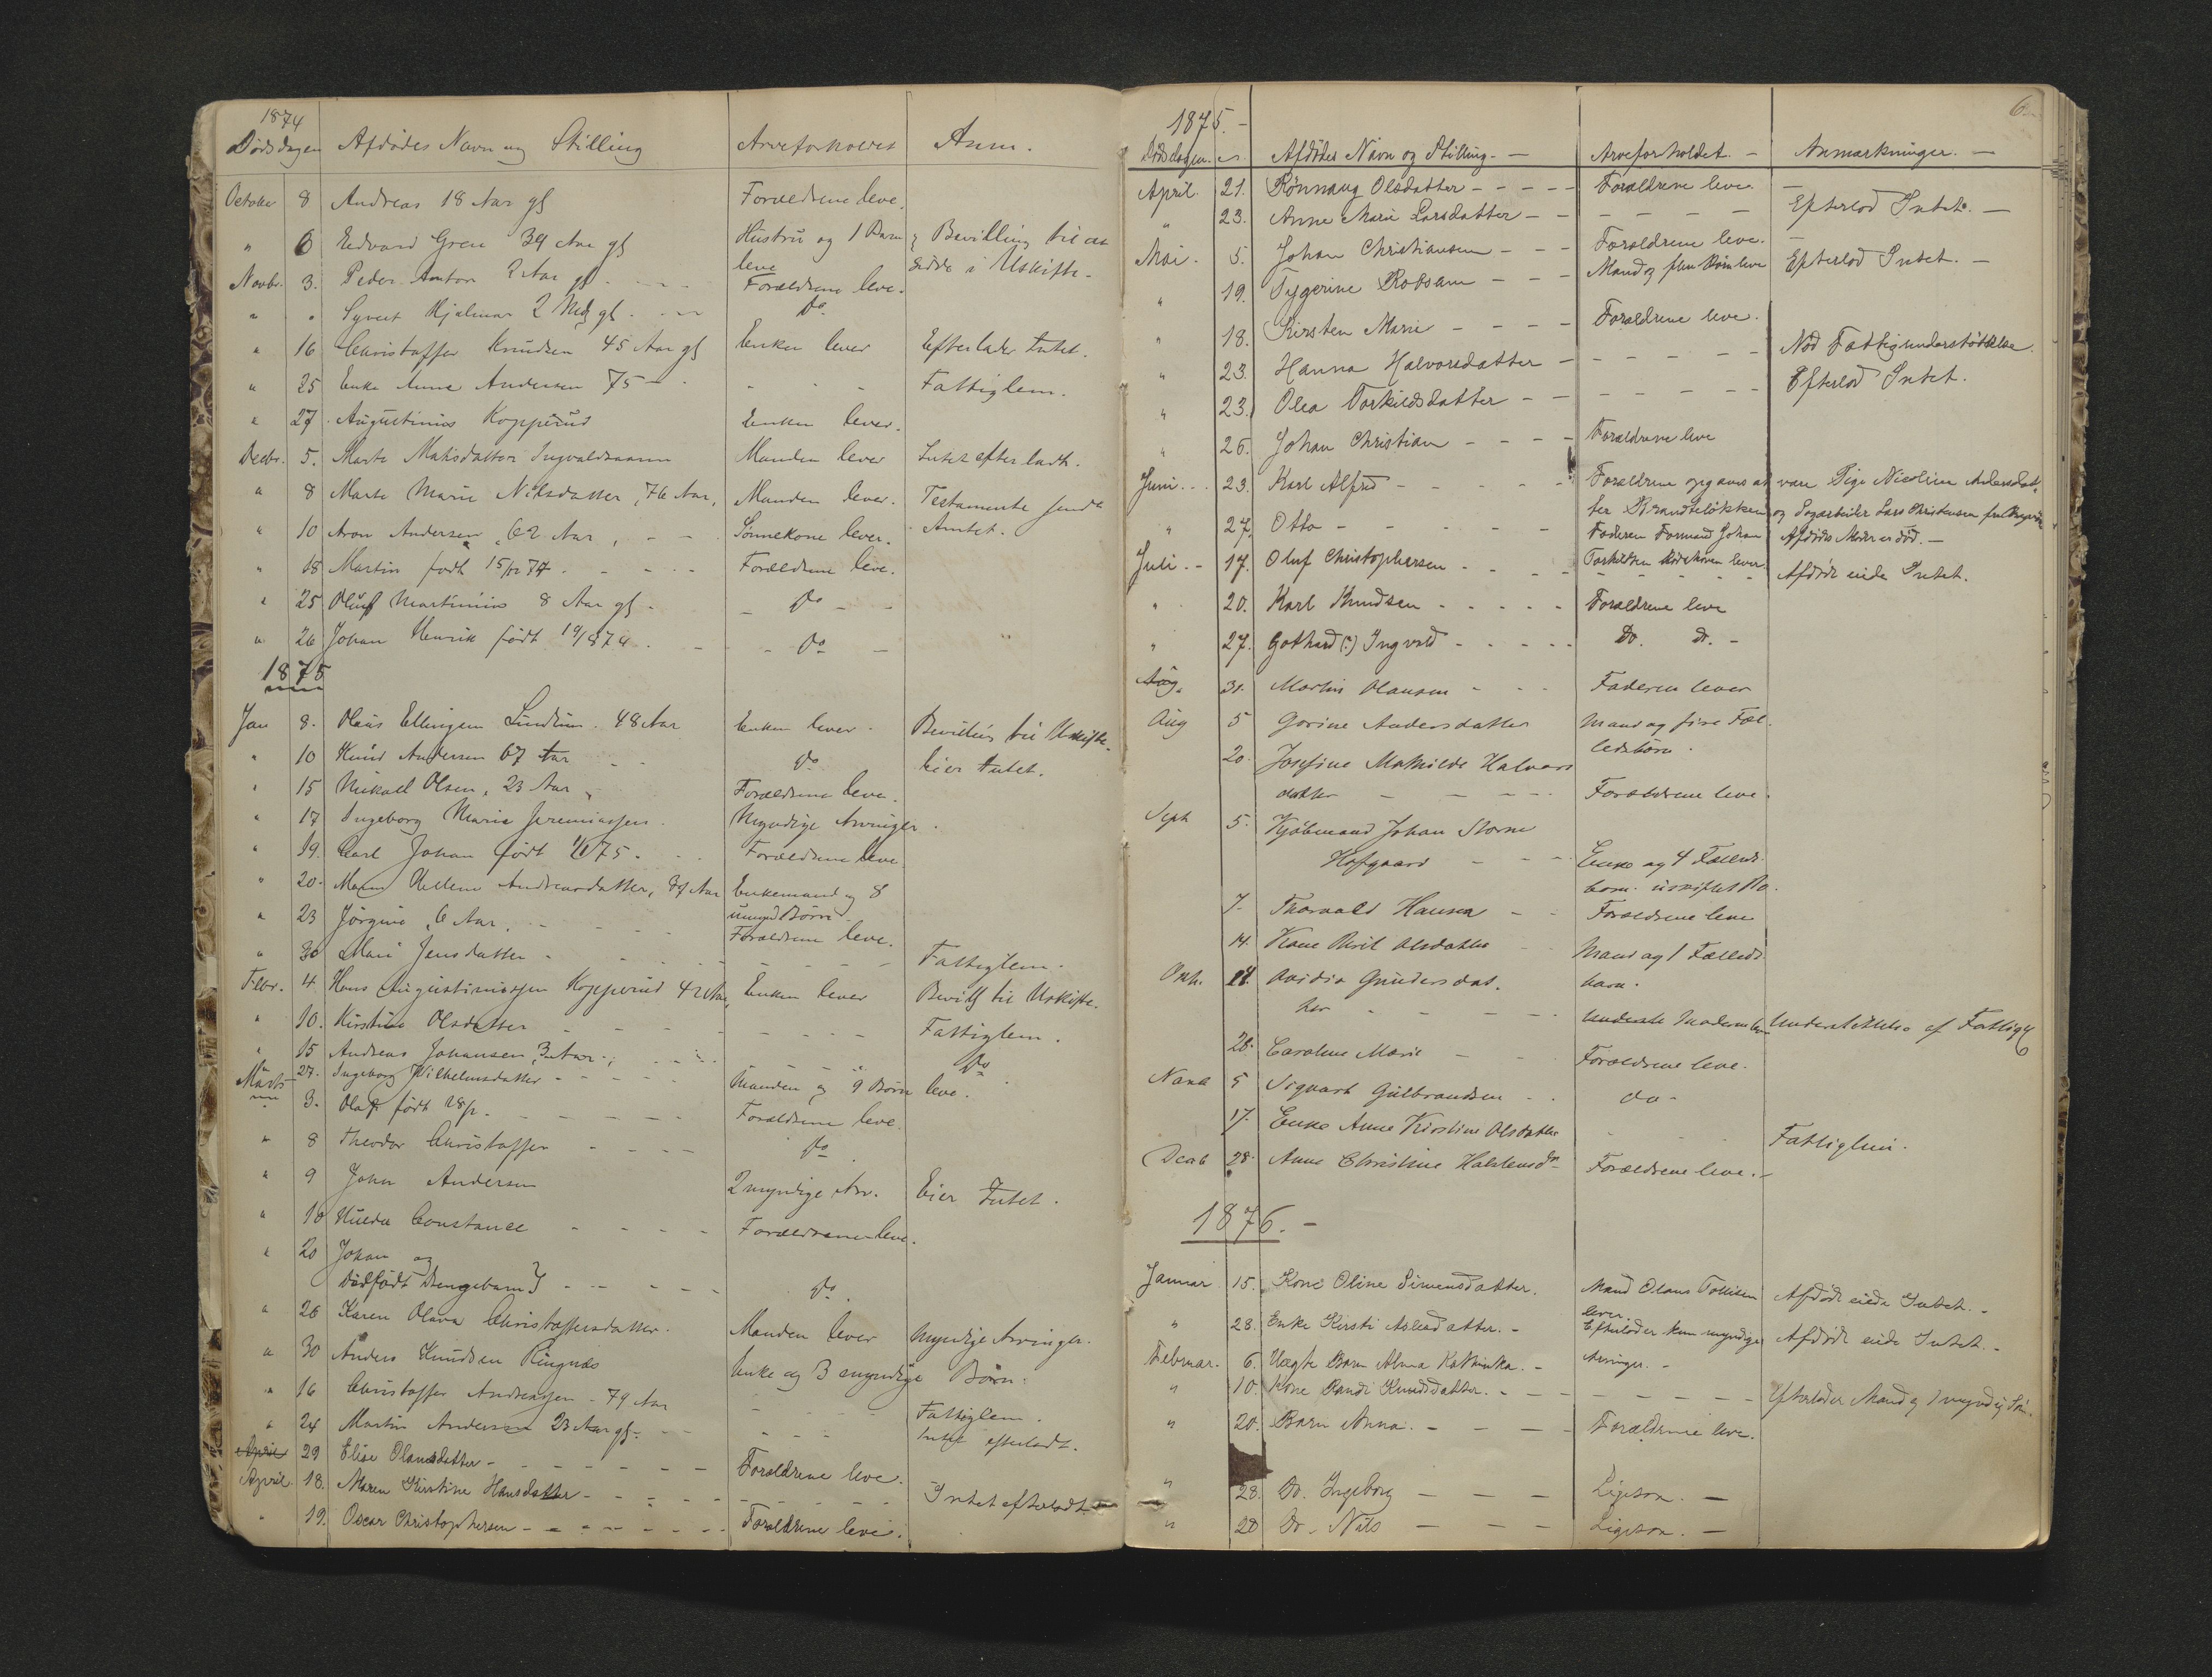 1874
Dødsdagen Afdødes Navn og Stilling Arveforholdet Anm.
October 8 Andreas 18 Aar gl Forældrene leve.
" 6 Edvard Gren 39 Aar gl Hustru og 1 Barn leve Bevilling til at sidde i Uskifte.
Novbr. 3. Peder Anton 2 Aar gl. Forældrene leve.
" " Syvert Hjalmar 2 Mdg gl. Do
" 16 Christoffer Knudsen 45 Aar gl Enken lever Efterlader Intet.
" 25 Enke Anne Andersen 75 - - - Fattiglem.
" 27 Augustinius Kopperud Enken lever.
Decbr. 5. Marte Mathisdatter Ingvaldsaaen Manden lever Intet efterladt.
" 8 Marte Marie Nilsdatter, 76 Aar, Manden lever. Testamente sendt
" 10 Aron Andersen, 62 Aar, - - Sønnekone lever. Amtet.
" 18 Martin født 15/12 74 - - - Forældrene leve.
" 25 Oluf Martinius 8 Aar gl. - Do - -
" 26 Johan Henrik født 19/8 74. - - Do -
1875
Jan 8. Olaus Ellingsen Lundsen. 48 Aar Enken lever. Bevilling til Uskifte.
" 10 Knud Andersen 67 Aar - - Do Eier Intet.
" 15 Mikael Olsen, 23 Aar, Forældrene leve.
" 17 Ingeborg Marie Jeremiassen. Myndige Arvinger.
" 19. Carl Johan født 1/1 75. - - Forældrene leve
" 20. Maren Hellene Andreasdatter, 39 Aar Enkemand og 8 umynd Børn.
" 23 Jørgine, 6 Aar, - - - Forældrene leve.
" 30 Mari Jensdatter - - - - Fattiglem.
Febr. 4 Hans Augustiniussen Kopperud 42 Aar, Enken lever Bevillg til Uskifte.
" 10. Kirstine Olsdatter - - - - Fattiglem.
" 15 Andreas Johansen, 3 Aar, - - - Do
" 27. Ingeborg Wilhelmsdatter - - - - Manden og 9 Børn leve.
Marts 3. Olaf født 28/2. - - - - Forældrene leve.
" 8 Theodor Christoffer - - - Do
" 9 John Andersen 2 myndige Arv. Eier Intet.
" 10 Hulda Constance - - - - Forældrene leve.
" 20 Johan og
Dødfødt Drengebarn} - - - - Do.
" 26 Karen Olava Christoffersdatter. Manden lever Myndige Arvinger.
" 30 Anders Knudsen Ringnæs Enke og 3 myndige Børn.
" 16 Christoffer Andreassen - 79 Aar - - - Fattiglem.
" 24 Martin Andersen 23 Aar gl. - - - - Intet efterladt.
April 29 Elise Olausdatter - - - - - - Forældrene leve.
April. 18. Maren Kirstine Hansdatter - - - - - - - Intet efterladt.
" 19. Oscar Christophersen - - - - - - Forældrene leve.
6.
1875. -
Dødsdagen. Afdødes Navn og Stilling. - Arveforholdet. - Anmærkninger. -
April. 21. Rönnaug Olsdatter - - - - - Forældrene leve. -
" 23. Anne Marie Larsdatter - - - - - - Efterlod Intet. -
Mai. 5. Johan Christiansen - - - Forældrene leve. -
" 19. Tygerine Robsam - - - Mand og flere Børn leve Efterlod Intet. -
" 18. Kirsten Marie - - - - Forældrene leve.
" 23. Hanna Halvorsdatter - - - - - - Nød Fattigunderstøttelse.
" 23. Olea Torkildsdatter - - - - - - Efterlod Intet.
" 26. Johan Christian - - - - Forældrene leve
Juni. - 23. Karl Alfred - - - - - Forældrene opgaves at være Pige Nicoline Andersdat-
ter Brandteløkken og Sagarbeider Lars Christensen fra
" 27. Otto - - - - - Faderen Formand Johan Afdødes Moder er død. -
Torkildsen lever.
Juli. - 17. Oluf Christophersen - - - - - - Afdøde eiede Intet.
" 20. Karl Knudsen - - - - - Forældrene leve
" 27. Gothard (?) Ingvald - - - - - Do. Do. -
Aug. 31. Martin Olausen - - - Faderen lever
Aug 5 Gorine Andersdatter Mand og fire Fæl-
ledsbørn.
20. Josefine Mathilde Halvors
datter - - - - Forældrene leve.
Sept 5. Kjøbmand Johan Storm
Hofgaard - - - Enke og 4 Fælleds
børn. uskiftet Bo.
7. Thorvald Hansen - - Forældrene leve
14. Kone Beril Olsdatter - - Mand og 1 Fælleds
barn.
Okt. 14. Ovidia Gundersdat.
ter - - - - - Moderen lever Understøttelse af Fattigv
28. Caroline Marie - - Forældrene leve.
Novb 5 Sigvart Gulbrandsen - - do -
17. Enke Anne Kirstine Olsdatter - - - Fattiglem.
Decb 28. Anne Christine Halstensdr Forældrene leve. -
1876. -
Januar 15. Kone Oline Simensdatter. Mand Olaus Tollefsen lever. Afdøde eiede Intet. -
" 28. Enke Kersti Aslesdatter. - Efterlader kun myndige Arvinger. - Afdøde eiede Intet. -
Februar. 6. Uægte Barn Alma Kathinka. -
" 10. Kone Randi Knudsdatter. - - - - - - - Efterlader Mand og 1 myndig Søn.
" 20. Barn Anna. - - - - Forældrene leve.
" 28. Do. Ingeborg - - - Ligesom. -
" 28 Do. Nils - - - Ligesom. -